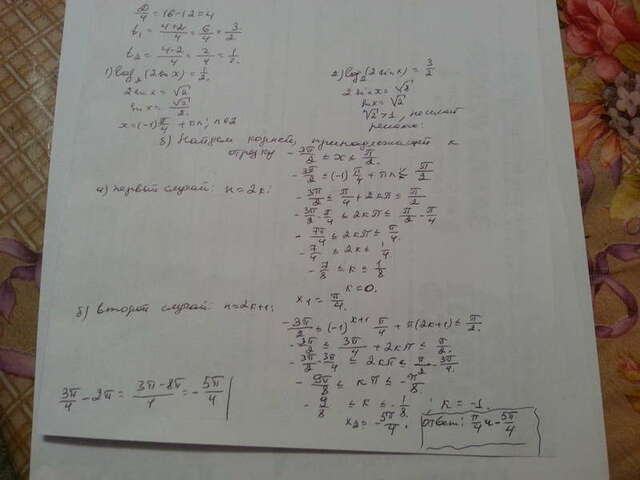 D/4 = 16-12 = 4
t₁ = (4+2)/4 = 6/4 = 3/2
t₂ = (4-2)/4 = 2/4 = 1/2.
1) log₂(2sin x) = 1/2.
2 sin x = √2
sin x = √2/2.
x = (-1) π/4 + πn; n∈Z
2) log₂(2 sin x) = 3/2
2 sin x = √2
sin x = √2
√2 > 1, не имеет
решения.
б) Найдем корней, принадлежащей к
отрезку -3π/2 ≤ x ≤ π/2.
-3π/2 ≤ (-1) π/4 + πn ≤ π/2
а) первый случай: n = 2k:
-3π/2 ≤ π/4 + 2kπ ≤ π/2
-3π/2 - π/4 ≤ 2kπ ≤ π/2 - π/4
-7π/4 ≤ 2kπ ≤ π/4.
-7/4 ≤ 2k ≤ 1/4
-7/8 ≤ k ≤ 1/8
k = 0.
x₁ = π/4.
б) второй случай: n = 2k+1:
-3π/2 ≤ (-1)^(k+1) π/4 + π(2k+1) ≤ π/2.
-3π/2 ≤ 3π/4 + 2kπ ≤ π/2.
-3π/2 - 3π/4 ≤ 2kπ ≤ π/2 - 3π/4.
-9π/8 ≤ kπ ≤ -π/8
-9/8 ≤ k ≤ -1/8. ; k = -1.
x₂ = -5π/4.
3π/4 - 2π = (3π-8π)/4 = -5π/4
Ответ: π/4 и -5π/4